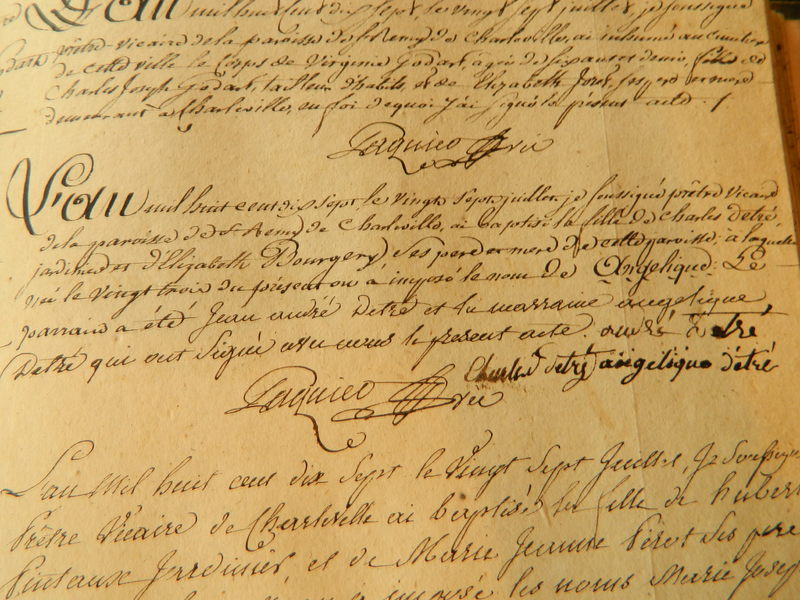 L'an mil huit cent dix sept, le vingt sept juillet, je soussigné
prêtre vicaire de la paroisse de St Remy de Charleville, ai inhumé au cimetiere
de cette ville le corps de Virginie Godart agée de six ans et demie, fille de
Charles Joseph Godart, tailleur d'habits, et de Elizabeth ses pere et mere
demeurant à Charleville, en foi de quoi j'ai signé le présent acte.
Paquico Vic
L'an mil huit cent dix sept le vingt sept juillet je soussigné prêtre vicaire
de la paroisse de St Remy de Charleville, ai baptisé la fille de Charles Detré
jardinier et d'Elizabeth Bourgery ses pere et mere de cette paroisse, à laquelle
née le vingt trois du présent on à imposé le nom de Angelique. Le
parrain a été Jean andré Detré et la marraine angelique
Detré qui ont signé avec nous le présent acte. andré Detré
Charles detré angelique détré
Paquico Vic
L'an Mil huit cent dix sept le Vingt Sept Juillet, Je Soussigné
Prêtre Vicaire de Charleville ai baptisé la fille de hubert
Pintaux Jardinier, et de Marie Jeanne Pirot Ses pere
imposé les noms Marie Josep